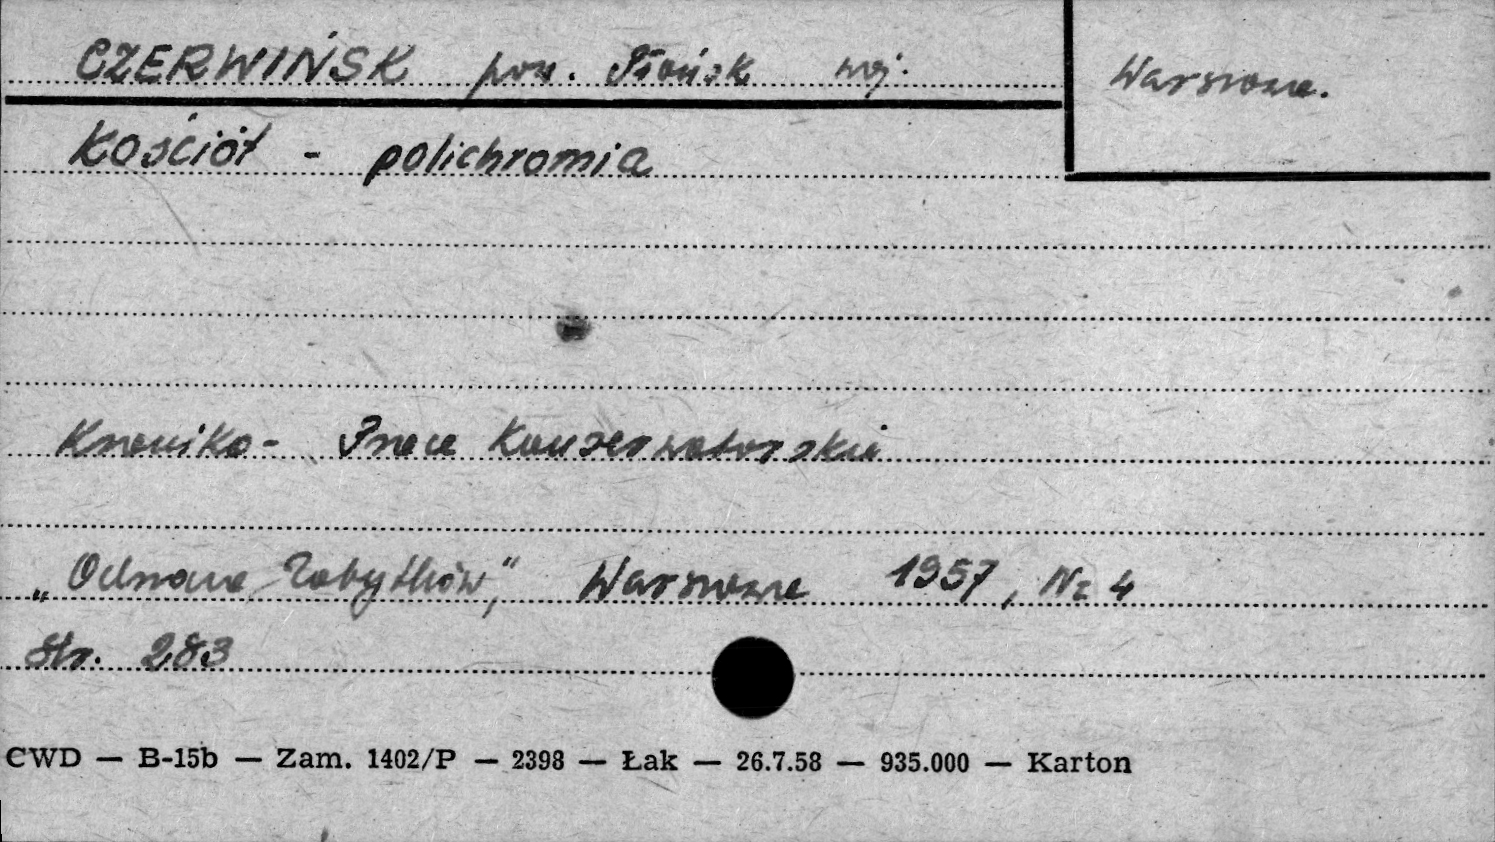 CZERWIŃSK pow. Płońsk woj. Warszawa.
Kościół - polichromia
Kronika - Prace Konserwatorskie
„Ochrona Zabytków," Warszawa 1957, Nr 4
Str. 283
CWD — B-15b — Zam. 1402/P — 2398 — Łak — 26.7.58 — 935.000 — Karton